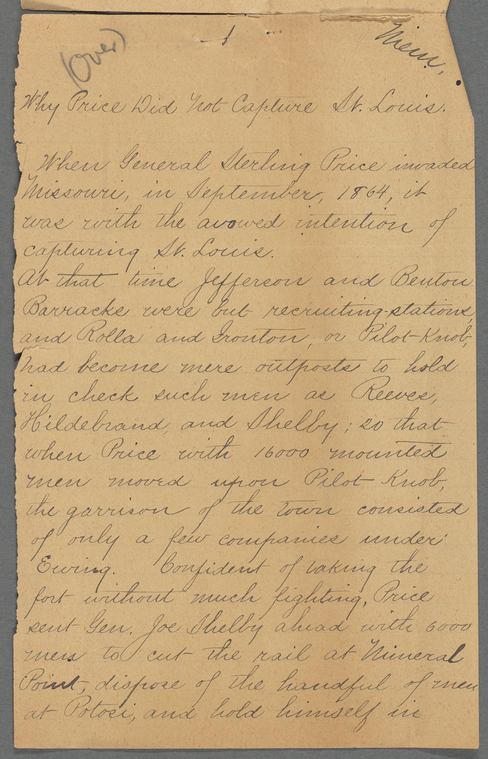 (Over)
1
Mem.
Why Price Did Not Capture St. Louis.
When General Sterling Price invaded
Missouri, in September, 1864, it
was with the avowed intention of
capturing St. Louis.
At that time Jefferson and Benton
Barracks were but recruiting-stations
and Rolla and Ironton, or Pilot-Knob,
had become mere outposts to hold
in check such men as Reeves,
Hildebrand, and Shelby; so that
when Price with 16000 mounted
men moved upon Pilot Knob,
the garrison of the town consisted
of only a few companies under
Ewing. Confident of taking the
fort without much fighting, Price
sent Gen. Joe Shelby ahead with 6000
men to cut the rail at Mineral
Point, dispose of the handful of men
at Potosi, and hold himself in